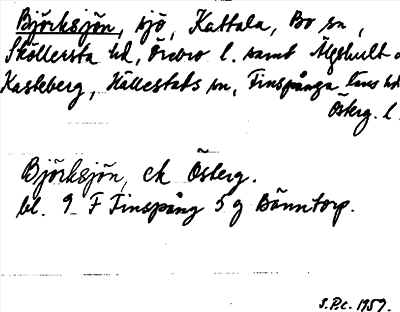 Björksjön, sjö, Kattala, Bo sn,
Sköllersta hd, Örebro l. samt Älgshult o
Kasteberg, Hällestads sn, Finspånga läns hd
Österg. l.
Björksjön, ek Österg.
bl. 9 F Finspång 5 g Bänntorp.
S.P.c. 1959.